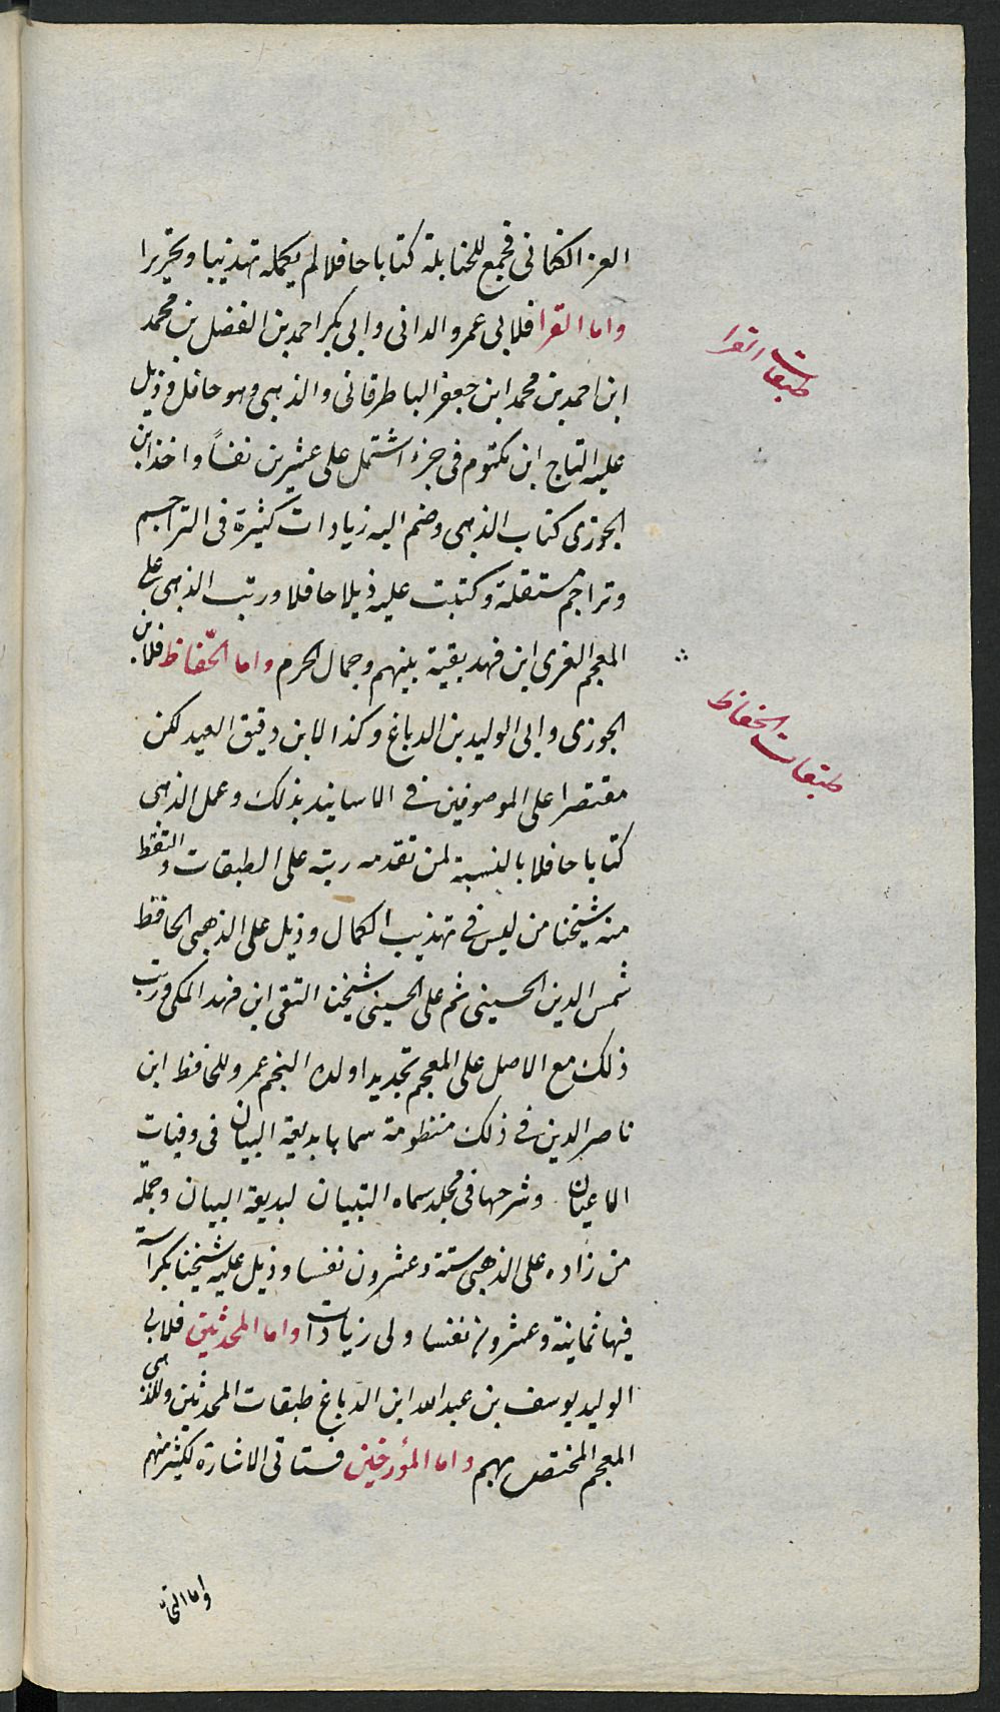 العز الكنانى فجمع للحنابلة كتابا حافلا لم يكمله تهذيبا وتحريرا
واما القرا فلابى عمرو الدانى وابى بكر احمد بن الفضل بن محمد
طبقات القرا
ابن احمد بن محمد ابن جعفر الباطرقانى والذهبى وهو حافل وذيل
عليه التاج ابن مكتوم فى جزء اشتمل على عشرين نفساً واخذ ابن
الجوزى كتاب الذهبى وضم اليه زيادات كثيرة فى التراجم
وتراجم مستقلة وكتبت عليه ذيلا حافلا ورتب الذهبى على
المعجم الغرى ابن فهد بقية بينهم وجمال الحرم واما الحّفاظ فلابن
طبقات الحفاظ
الجوزى وابى الوليد بن الدباغ وكذا لابن دقيق العيد لكن
مقتصرا على الموصوفين فى الاسانيد بذلك وعمل الذهبى
كتابا حافلا بالنسبة لمن تقدمه رتبه على الطبقات والتقط
منه شيخنا من ليس فى تهذيب الكمال وذيل على الذهبى الحافظ
شمس الدين الحسينى ثم على الحسينى شيخنا التقى ابن فهد المكى ورتب
ذلك مع الاصل على المعجم تجديدا ولده النجم عمر وللحافظ ابن
ناصر الدين فى ذلك منظومة سماها بديعة البيان فى وفيات
الاعيان وشرحها فى مجلد سماه التبيان لبديعة البيان وجملة
من زاده على الذهبى ستة وعشرون نفسا وذيل عليه شيخنا بكرآسة
فيها ثمانية وعشرون نفسا ولى زيادات واما المحدثين فلابى
الوليد يوسف بن عبد الله ابن الدباغ طبقات المحدثين وللذهبى
المعجم المختص بهم واما المؤرخين فستاتى الاشارة لكثير منهم
واما النحاة